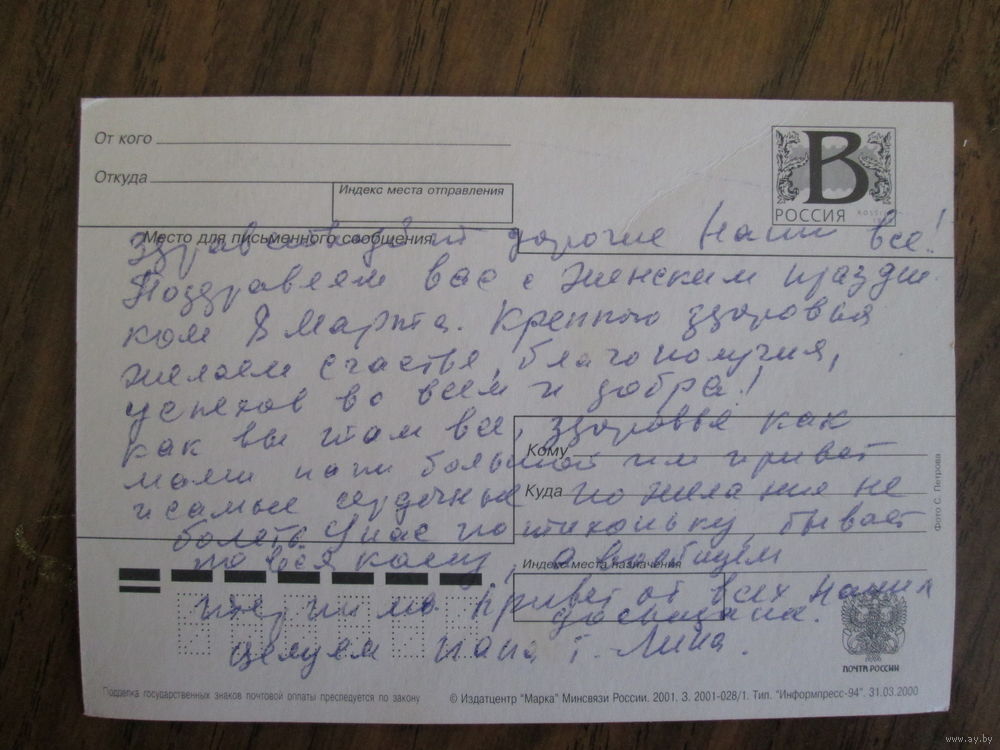 От кого
Откуда
Индекс места отправления
В
РОССИЯ
ROSSIJA
Место для письменного сообщения
Здравствуйте дорогие наши все!
Поздравляем вас с женским праздни
ком 8 Марта. Крепкого здоровья
желаем счастья, благополучия,
успехов во всем и добра!
как вы там все, здоровье как
мамы папы большой им привет
и самые сердечные пожелания не
болеть. У нас потихоньку, бывает
по всякому, а вообщем
терпимо. Привет от всех наших
досвидания.
целуем папа т. Лина.
Кому
Куда
Индекс места назначения
Фото С. Петрова
ПОЧТА РОССИИ
Подделка государственных знаков почтовой оплаты преследуется по закону
© Издатцентр "Марка" Минсвязи России. 2001. З. 2001-028/1. Тип. "Информпресс-94". 31.03.2000
www.ay.by